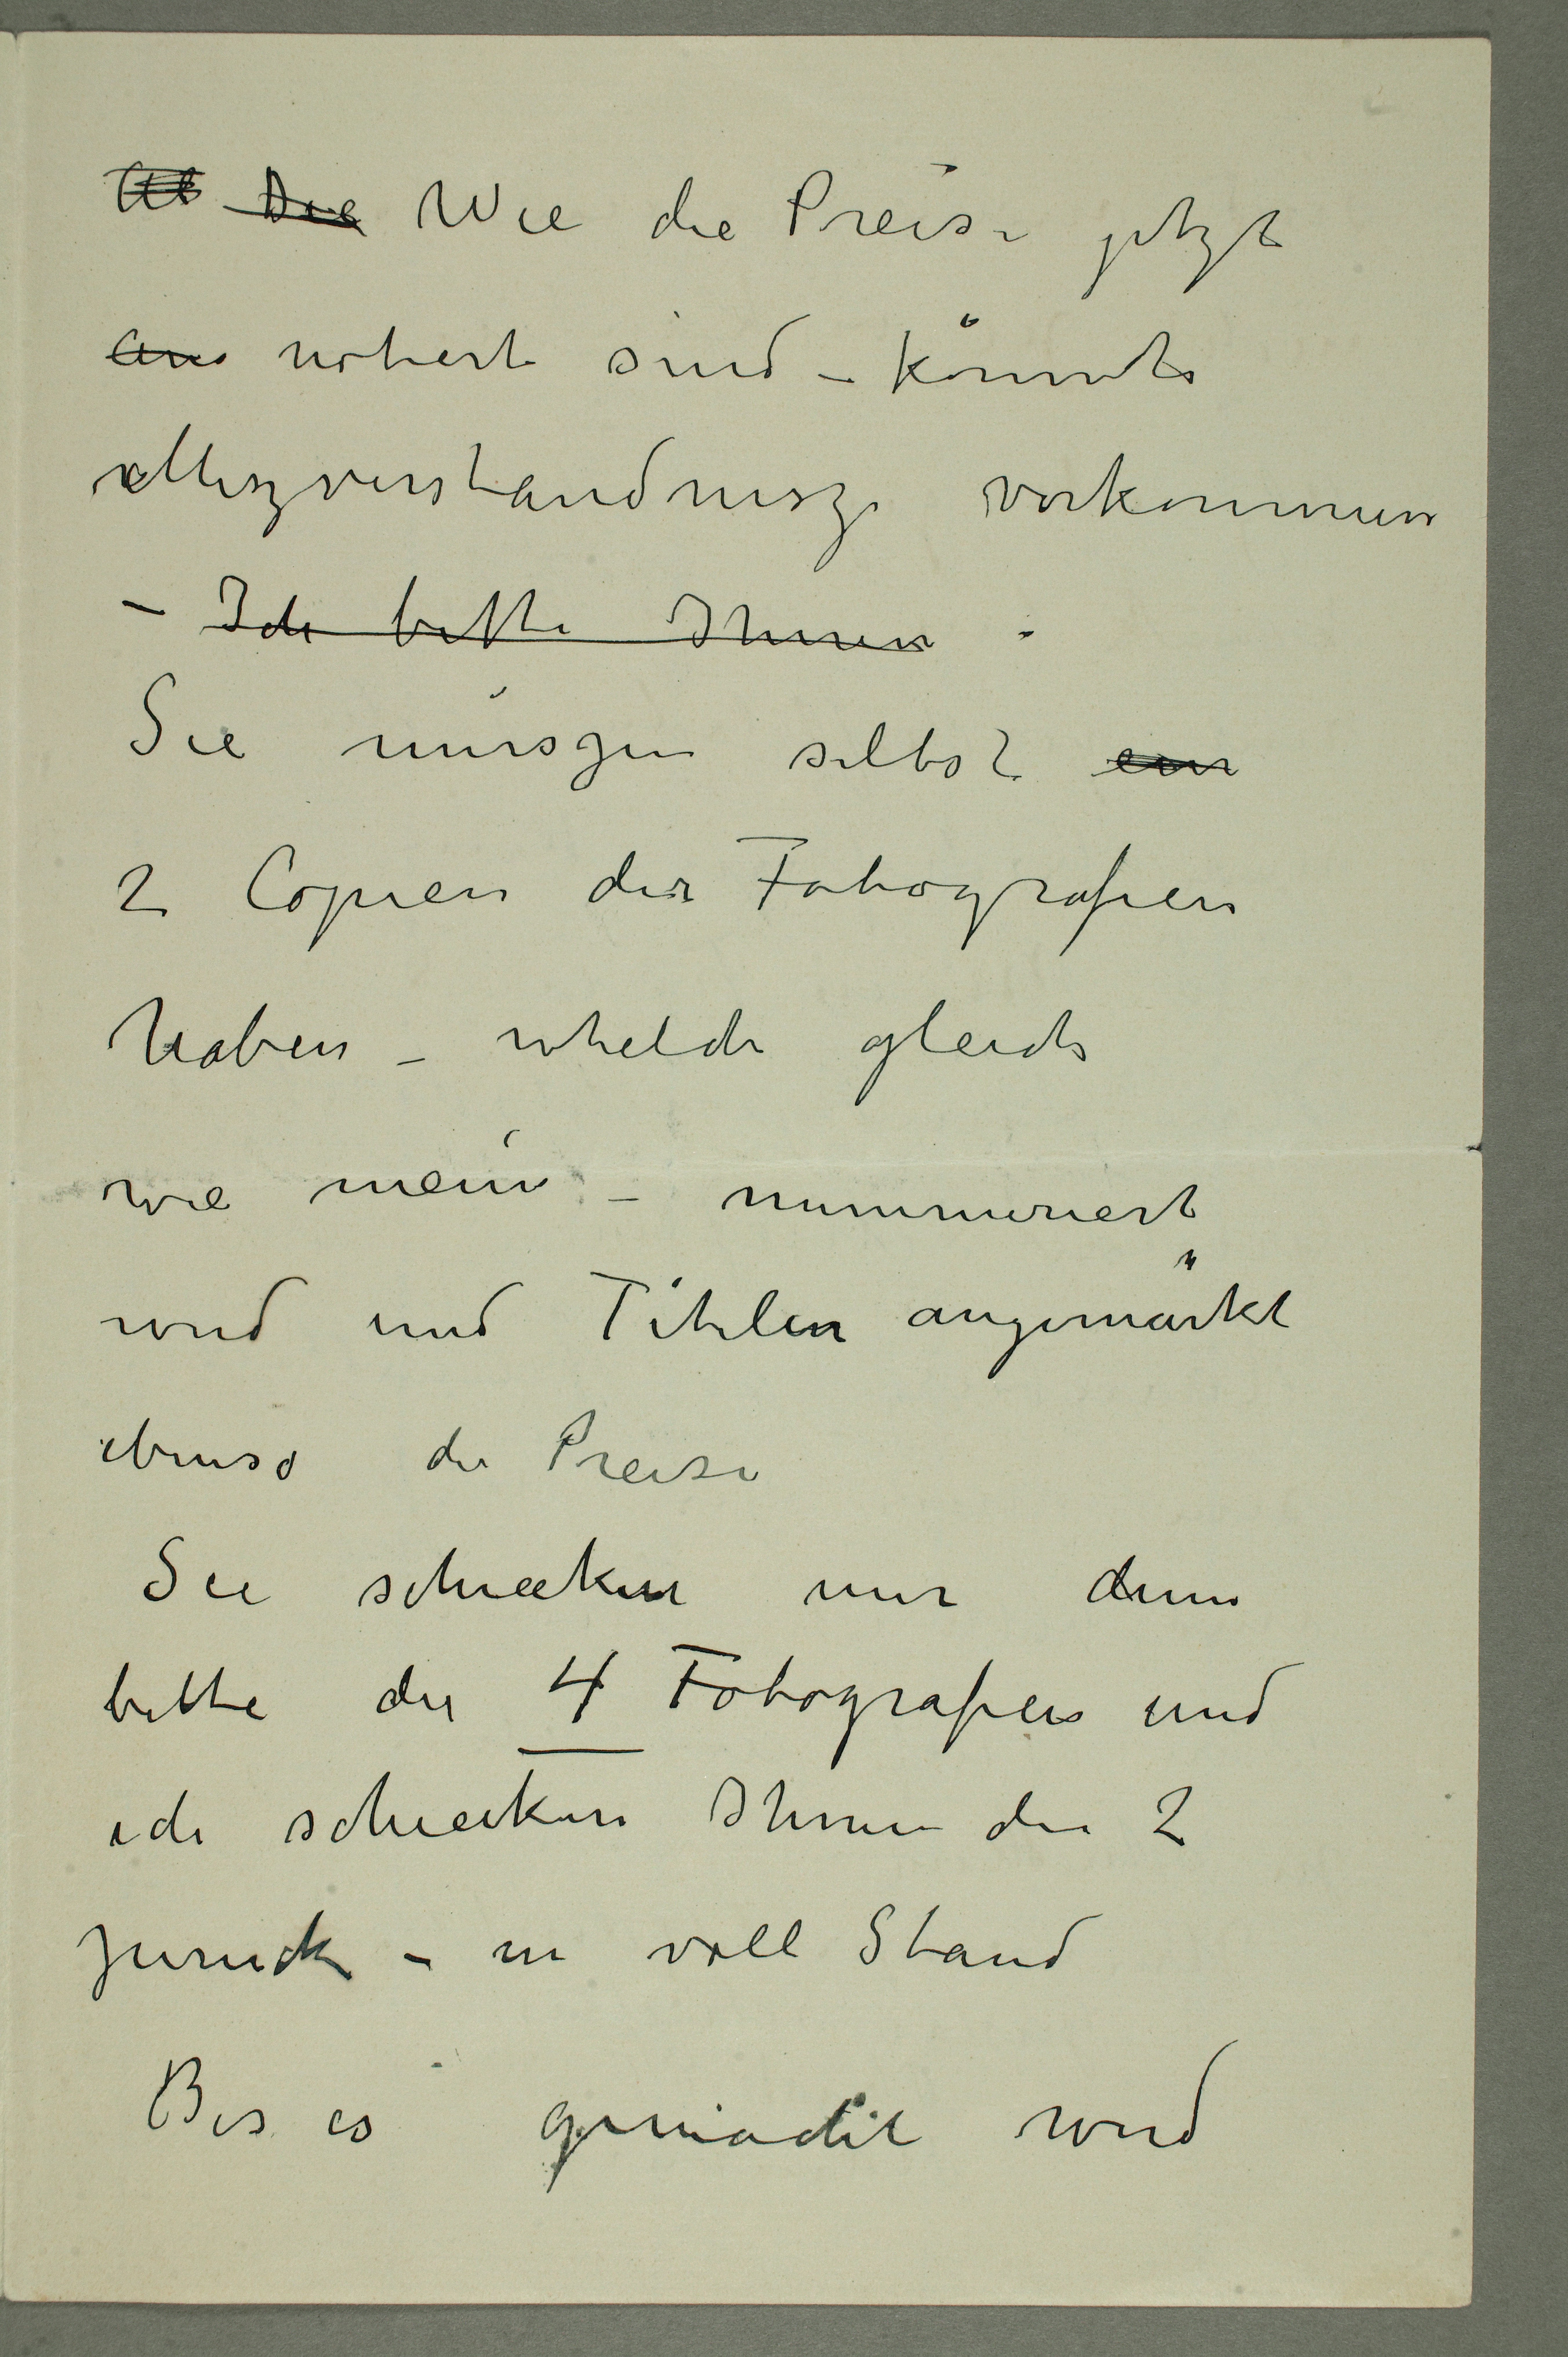 ~~Ut~~ ~~Die~~ Wie die Preise jetzt
~~an~~ notiert sind – könnte
Miszverständnisze vorkommen
– ~~Ich bitte Ihnen~~ .
Sie müszen selbst ~~ein~~
2 Copien der Fotografien
haben – whelche gleich
wie mein – nummeriert
wird und Titelen angemärkt
ebenso die Preise
Sie schiecken mir denn
bitte die 4 Fotografien und
ich schiecken Ihnen die 2
zurück – in voll Stand
Bis es gemacht wird